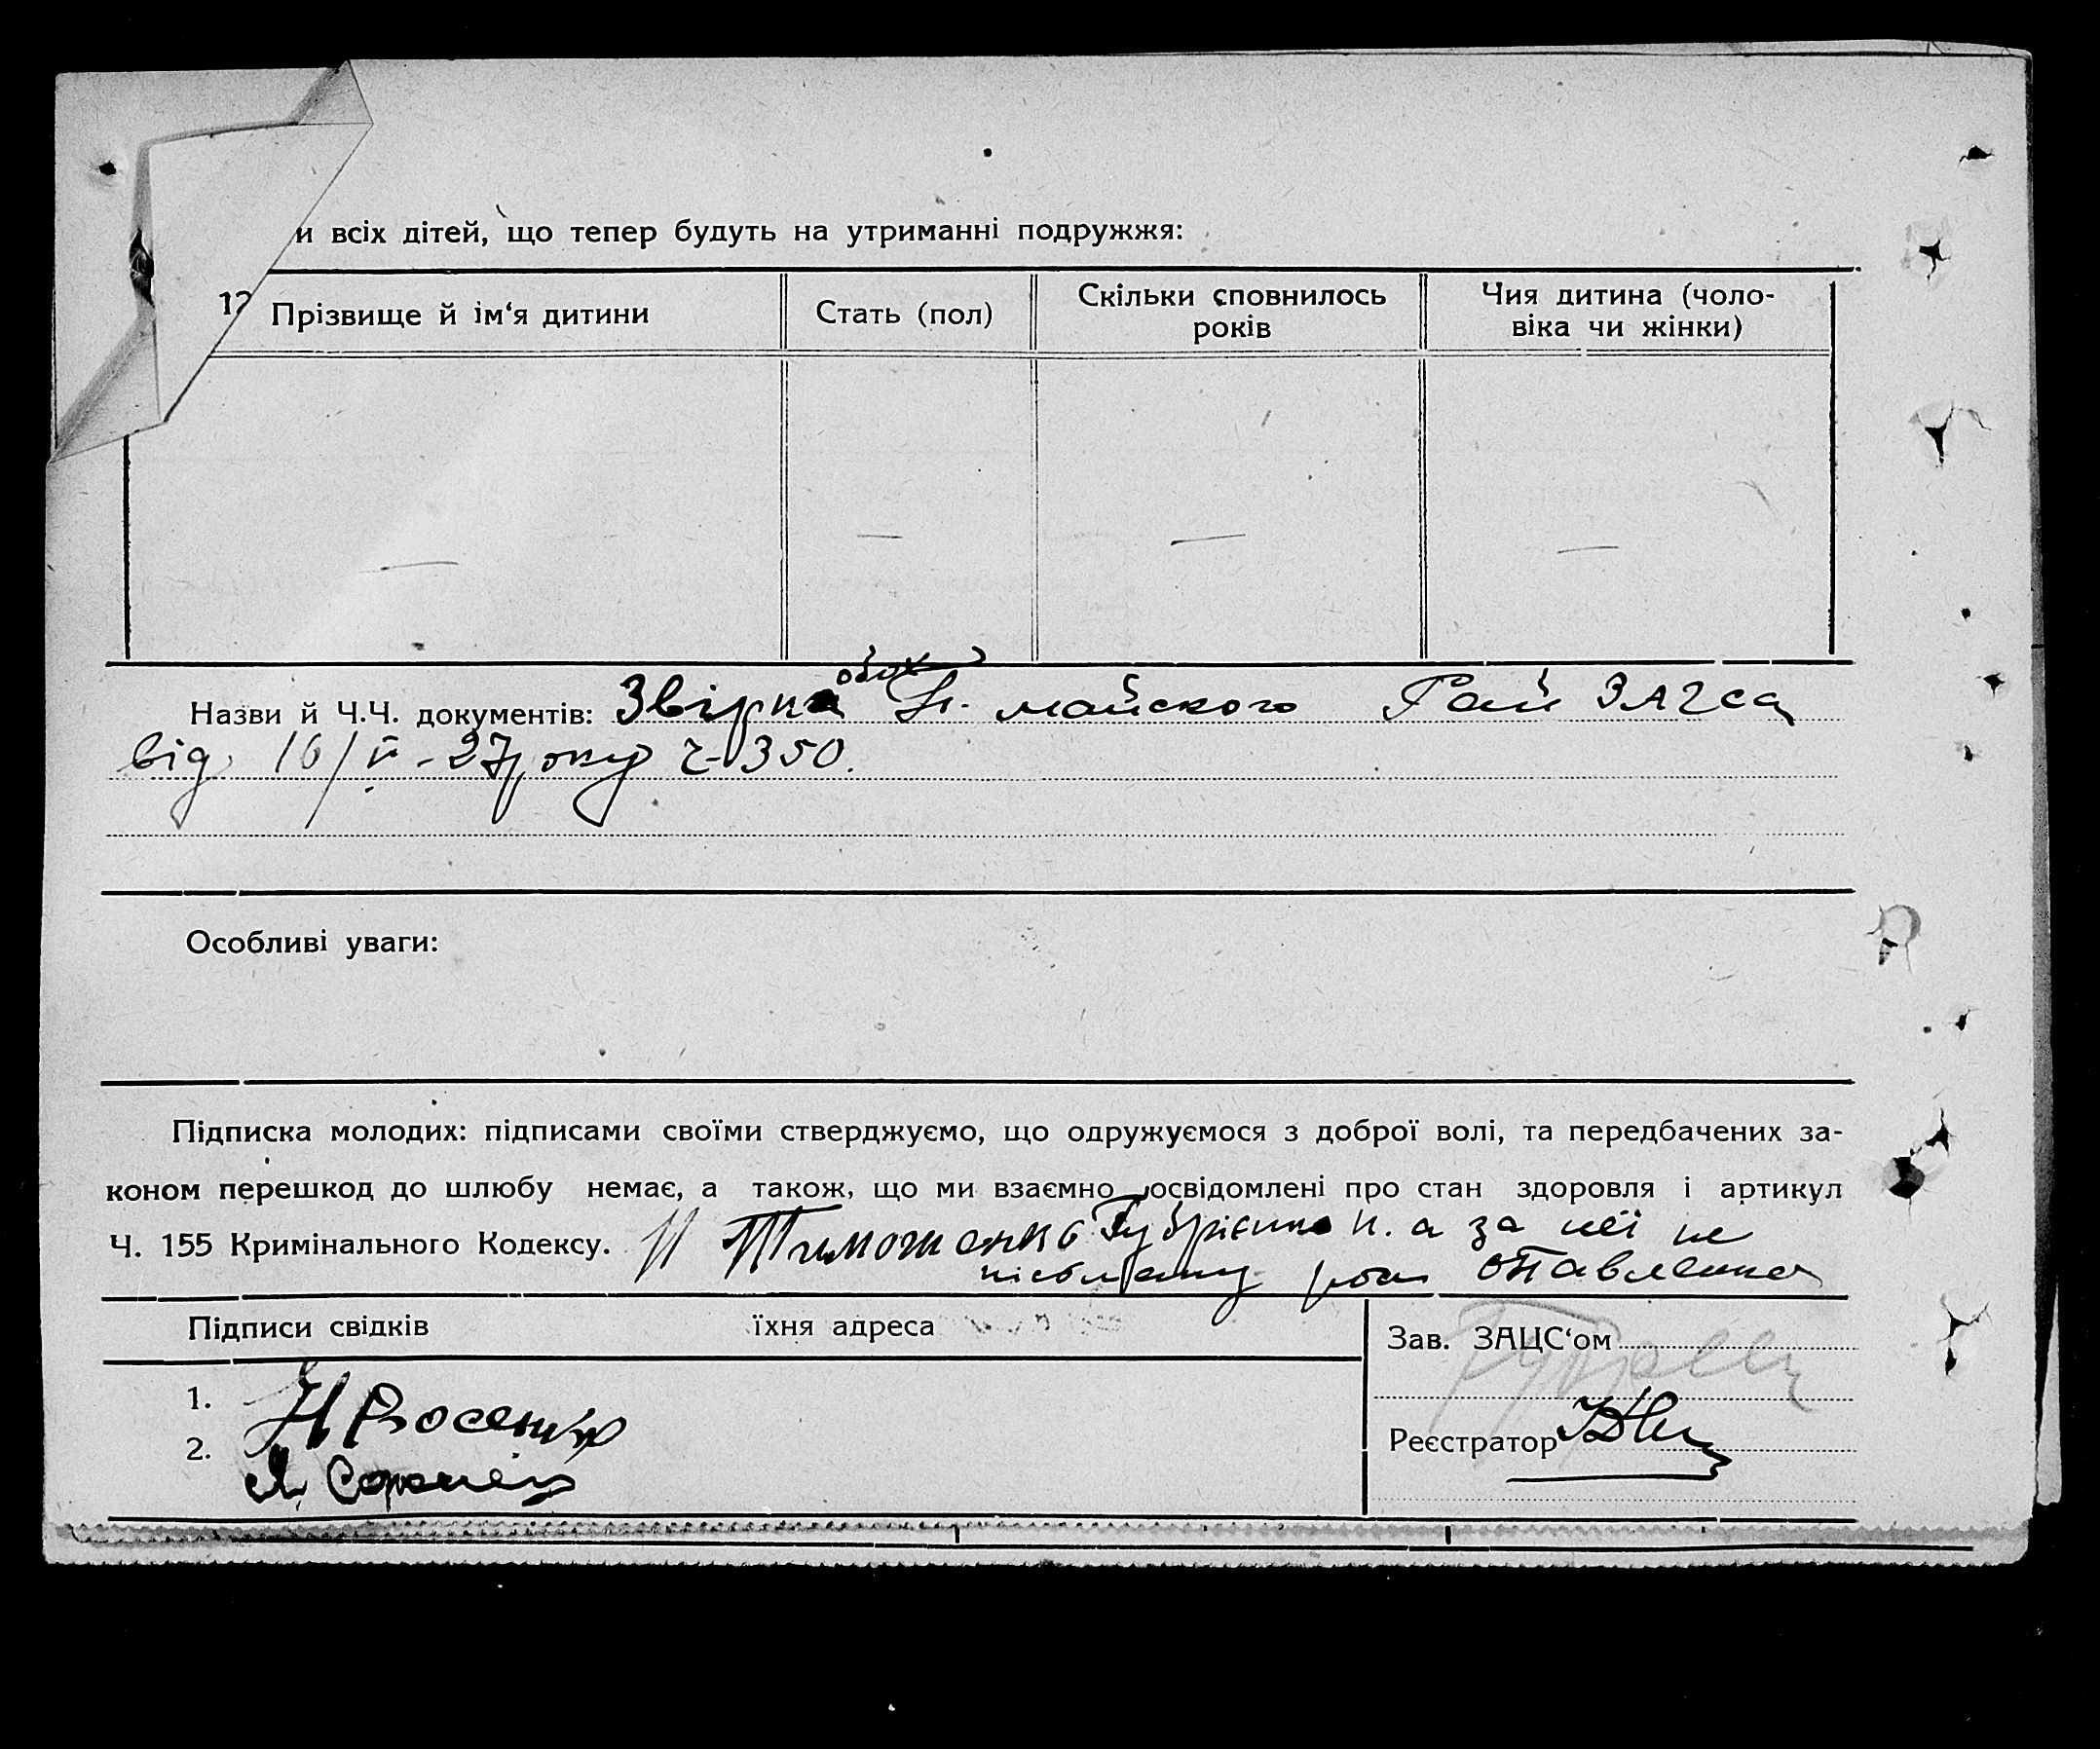 и всіх дітей, що тепер будуть на утриманні подружжя:
12
Прізвище й ім‘я дитини
Стать (пол)
Скільки сповнилось років
Чия дитина (чоло-
віка чи жінки)
— — — —
обох
Назви й Ч.Ч. документів: Звірка майского Рай ЗАГСа
від 16/ -27 року ч-350.
Особливі уваги:
Підписка молодих: підписами своїми стверджуємо, що одружуємося з доброї волі, та передбачених за-
коном перешкод до шлюбу немає, а також, що ми взаємно освідомлені про стан здоровля і артикул
Ч. 155 Кримінального Кодексу. Тимошенко а за неї не
Підписи свідків
їхня адреса
Зав. ЗАЦС‘ом
1.
2.
Реєстратор